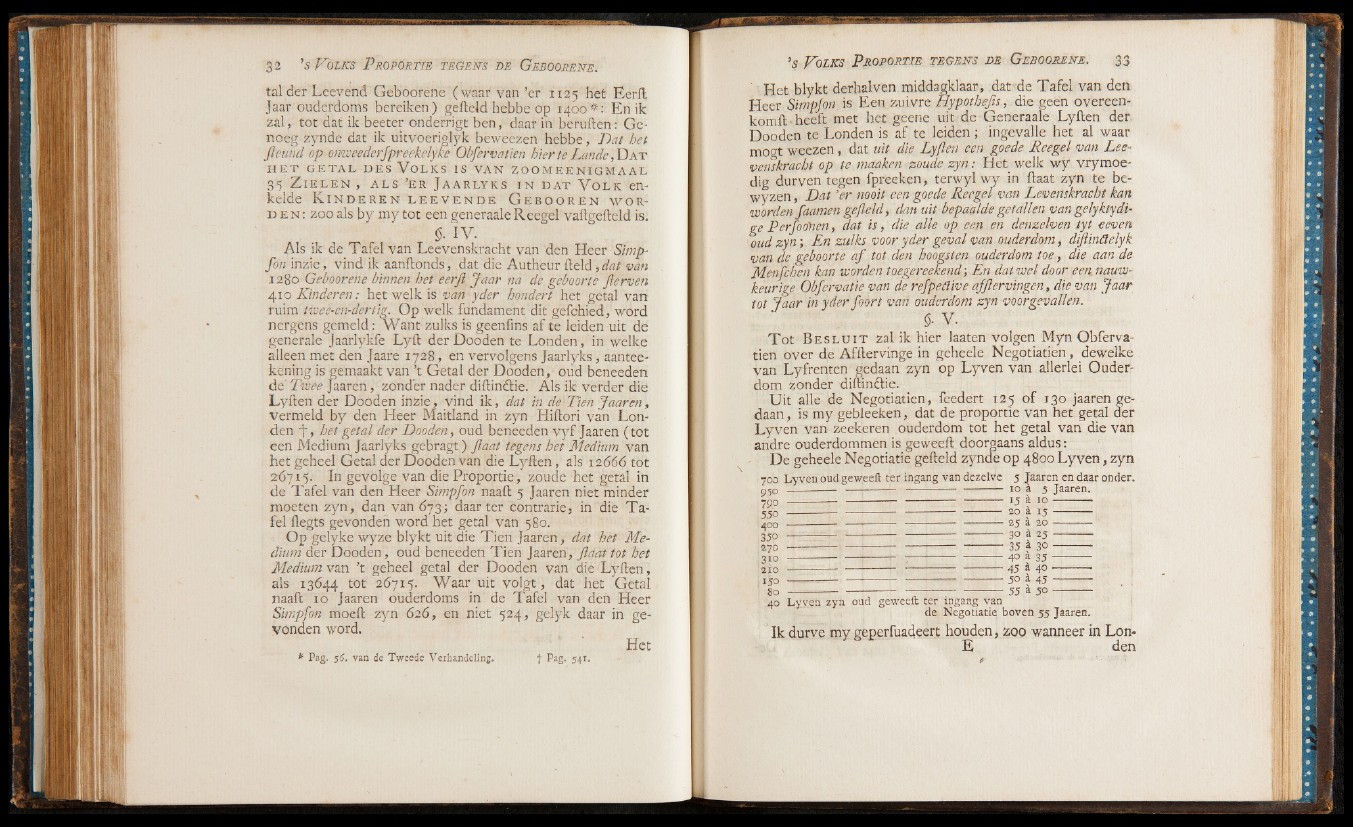 32 's VOLKS PROPORTIE TEGENS DE GEBOORENE.
tal der Leevend Geboorene (waar van 'er 1125 het Eerſt
Jaar ouderdoms bereiken) geſteld hebbe op 1400*: En ik
zal, tot dat ik beeter onderrigt ben, daar in beruſten: Ge-
noeg zynde dat ik uitvoeriglyk beweezen hebbe, Dat het
ſteund op onweederſpreekelyke Obſervatien hier te Lande, DAT
HET GETAL DES VOLKS IS VAN ZOOMEENIGMAAL
35 ZIELEN, ALS 'ER JAARLYKS IN DAT VOLK en-
kelde KINDEREN LEEVENDE GEBOOREN WOR-
DEN: zoo als by my tot een generaale Reegel vaſtgeſteld is.
§. IV.
Als ik de Tafel van Leevenskracht van den Heer Simp-
ſon inzie, vind ik aanſtonds, dat die Autheur ſteld, dat van
1280 Geboorene binnen het eerſt Jaar na de geboorte ſterven
410 Kinderen: het welk is van yder hondert het getal van
ruim twee-en-dertig. Op welk fundament dit geſchied, word
nergens gemeld: Want zulks is geenſins af te leiden uit de
generale Jaarlykſe Lyſt der Dooden te Londen, in welke
alleen met den Jaare 1728, en vervolgens Jaarlyks, aantee-
kening is gemaakt van 't Getal der Dooden, oud beneeden
de Twee Jaaren, zonder nader diſtinctie. Als ik verder die
Lyſten der Dooden inzie, vind ik, dat in de Tien Jaaren,
vermeld by den Heer Maitland in zyn Hiſtori van Lon-
den †, het getal der Dooden, oud beneeden vyf Jaaren (tot
een Medium Jaarlyks gebragt) ſtaat tegens het Medium van
het geheel Getal der Dooden van die Lyſten, als 12666 tot
26715. In gevolge van die Proportie, zoude het getal in
de Tafel van den Heer Simpſon naaſt 5 Jaaren niet minder
moeten zyn, dan van 673; daar ter contrarie, in die Ta-
fel ſlegts gevonden word het getal van 580.
Op gelyke wyze blykt uit die Tien Jaaren, dat het Me-
dium der Dooden, oud beneeden Tien Jaaren, ſtaat tot het
Medium van 't geheel getal der Dooden van die Lyſten,
als 13644 tot 26715. Waar uit volgt, dat het Getal
naaſt 10 Jaaren ouderdoms in de Tafel van den Heer
Simpſon moeſt zyn 626, en niet 524, gelyk daar in ge-
vonden word.
Het
* Pag. 56. van de Tweede Verhandeling. † Pag. 541.
's VOLKS PROPORTIE TEGENS DE GEBOORENE. 33
Het blykt derhalven middagklaar, dat de Tafel van den
Heer Simpſon is Een zuivre Hypotheſis, die geen overeen-
komſt heeft met het geene uit de Generaale Lyſten der
Dooden te Londen is af te leiden; ingevalle het al waar
mogt weezen, dat uit die Lyſten een goede Reegel van Lee-
venskracht op te maaken zoude zyn: Het welk wy vrymoe-
dig durven tegen ſpreeken, terwyl wy in ſtaat zyn te be-
wyzen, Dat 'er nooit een goede Reegel van Levenskracht kan
worden ſaamen geſteld, dan uit bepaalde getallen van gelyktydi-
ge Perſoonen, dat is, die alle op een en denzelven tyt eeven
oud zyn; En zulks voor yder geval van ouderdom, diſtinctelyk
van de geboorte af tot den hoogſten ouderdom toe, die aan de
Menſchen kan worden toegereekend; En dat wel door een nauw-
keurige Obſervatie van de reſpective afſtervingen, die van Jaar
tot Jaar in yder ſoort van ouderdom zyn voorgevallen.
§. V.
Tot BESLUIT zal ik hier laaten volgen Myn Obſerva-
tien over de Afſtervinge in geheele Negotiatien, dewelke
van Lyfrenten gedaan zyn op Lyven van allerlei Ouder-
dom zonder diſtinctie.
Uit alle de Negotiatien, ſeedert 125 of 130 jaaren ge-
daan, is my gebleeken, dat de proportie van het getal der
Lyven van zeekeren ouderdom tot het getal van die van
andre ouderdommen is geweeſt doorgaans aldus:
De geheele Negotiatie geſteld zynde op 4800 Lyven, zyn
700 Lyven oud geweeſt ter ingang van dezelve 5 Jaaren en daar onder.
950 ——— ——— ——— ——— 10 à 5 Jaaren.
790 ——— ——— ——— ——— 15 à 10 ———
550 ——— ——— ——— ——— 20 à 15 ———
400 ——— ——— ——— ——— 25 à 20 ———
350 ——— ——— ——— ——— 30 à 25 ———
270 ——— ——— ——— ——— 35 à 30 ———
310 ——— ——— ——— ——— 40 à 35 ———
210 ——— ——— ——— ——— 45 à 40 ———
150 ——— ——— ——— ——— 50 à 45 ———
80 ——— ——— ——— ——— 55 à 50 ———
40 Lyven zyn oud geweeſt ter ingang van
de Negotiatie boven 55 Jaaren.
Ik durve my geperſuadeert houden, zoo wanneer in Lon-
E den